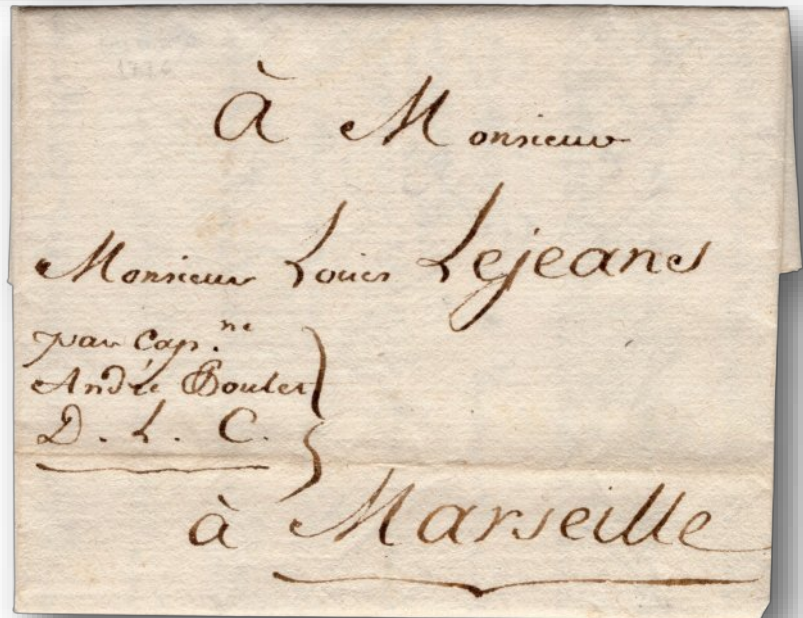 1776
à Monsieur
Monsieur Louis Lejeans
par Cap.ne
André Boulet
D. L. C.
à Marseille